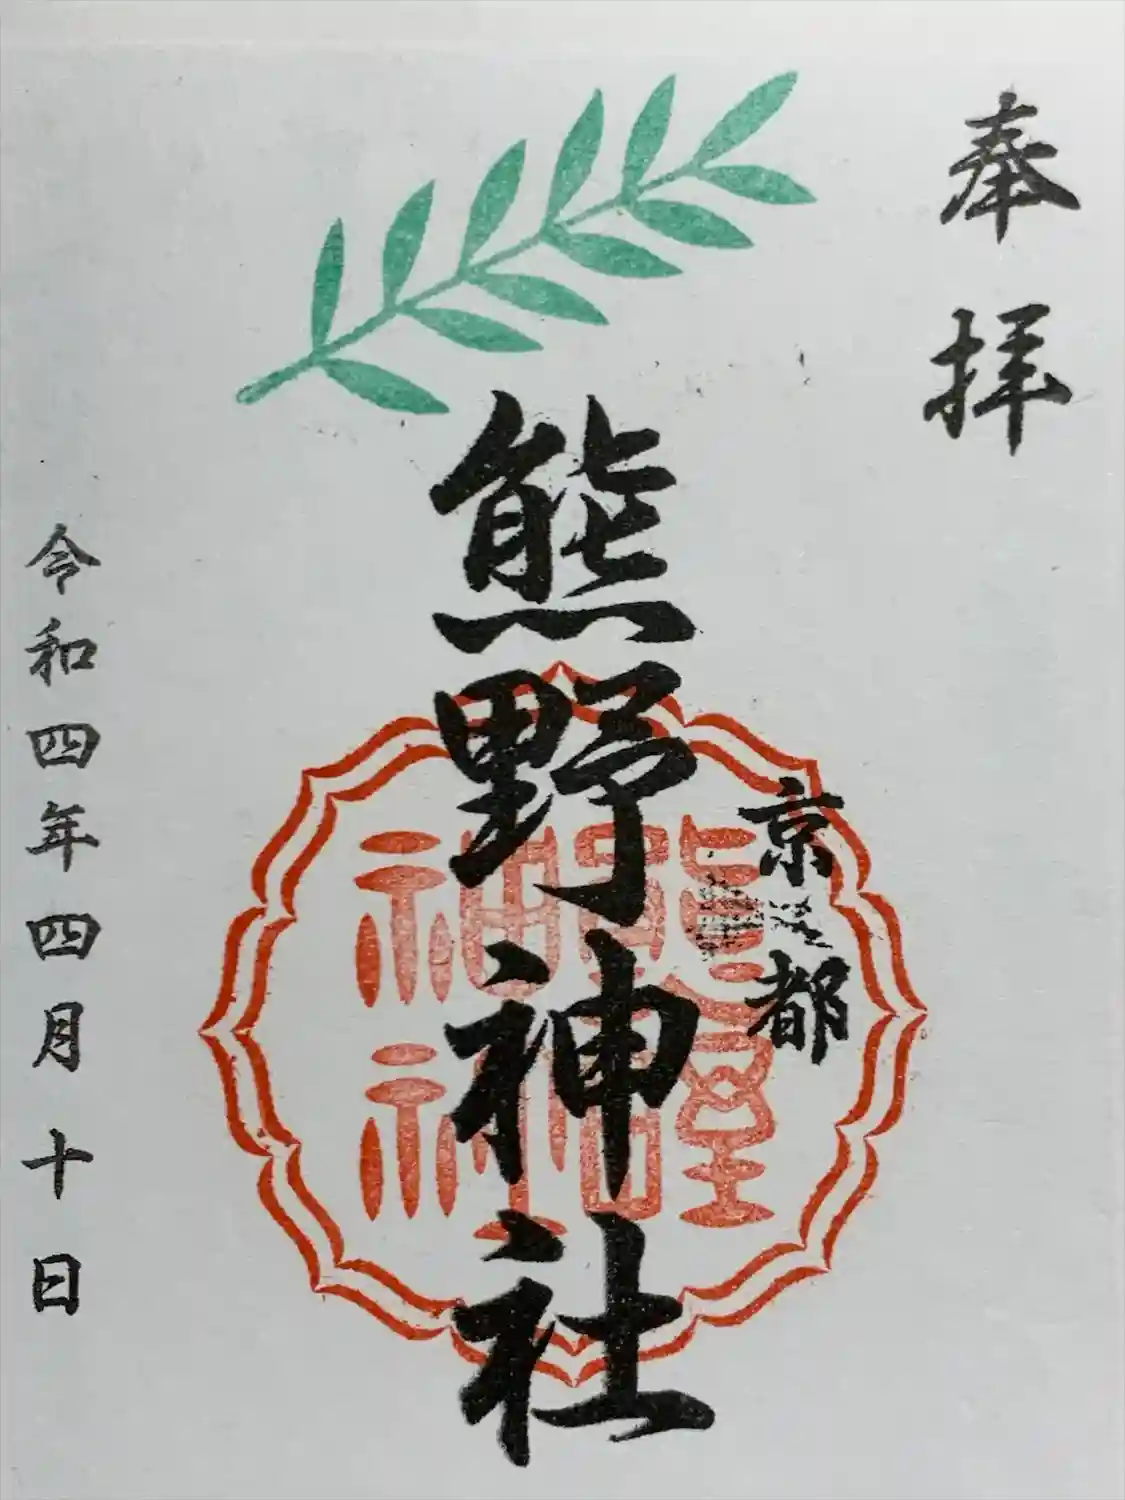 奉拝
京都
熊野神社
熊野神社
令和四年四月十日